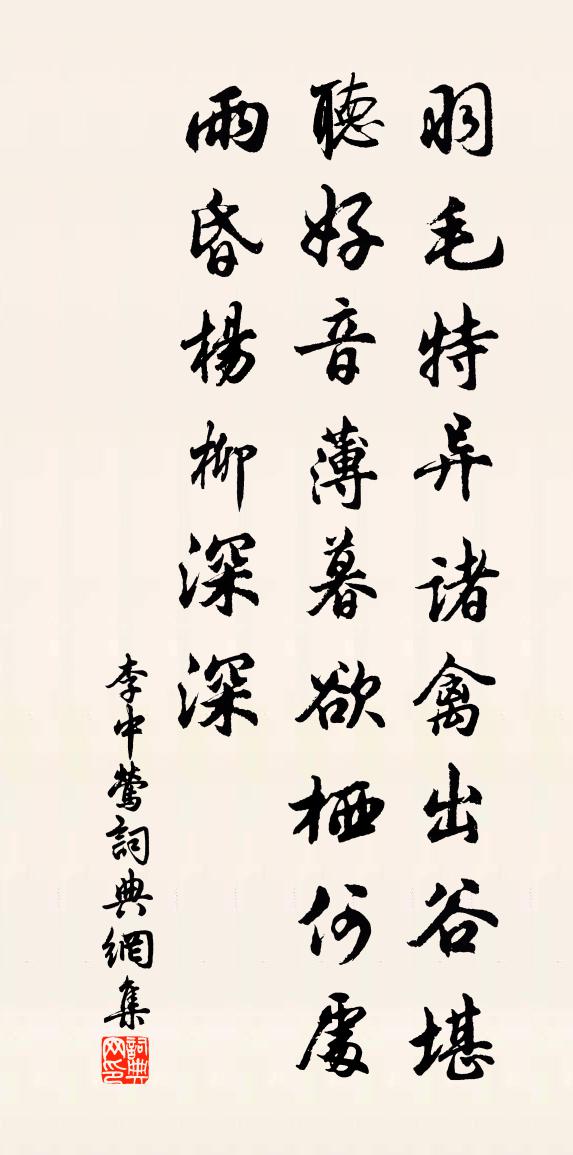 羽毛特异诸禽出谷堪
聽好音薄暮欲栖何處
雨昏楊柳深深
李中鶯詞典網集
詞典网印